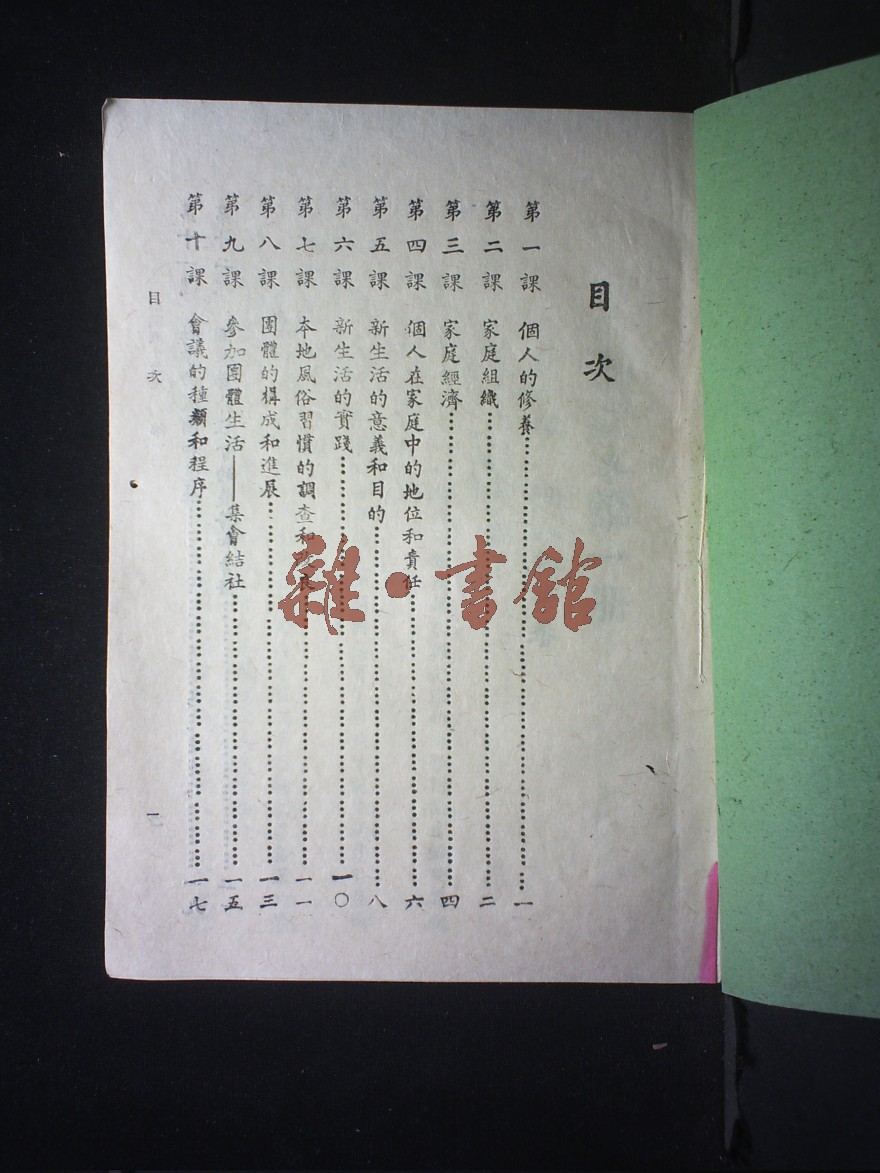 目次
第一課 個人的修養……一
第二課 家庭組織……二
第三課 家庭經濟……四
第四課 個人在家庭中的地位和責任……六
第五課 新生活的意義和目的……八
第六課 新生活的實踐……一〇
第七課 本地風俗習慣的調查和……一一
第八課 團體的構成和進展……一三
第九課 參加團體生活——集會結社……一五
第十課 會議的種類和程序……一七
目次
一
雜·書館